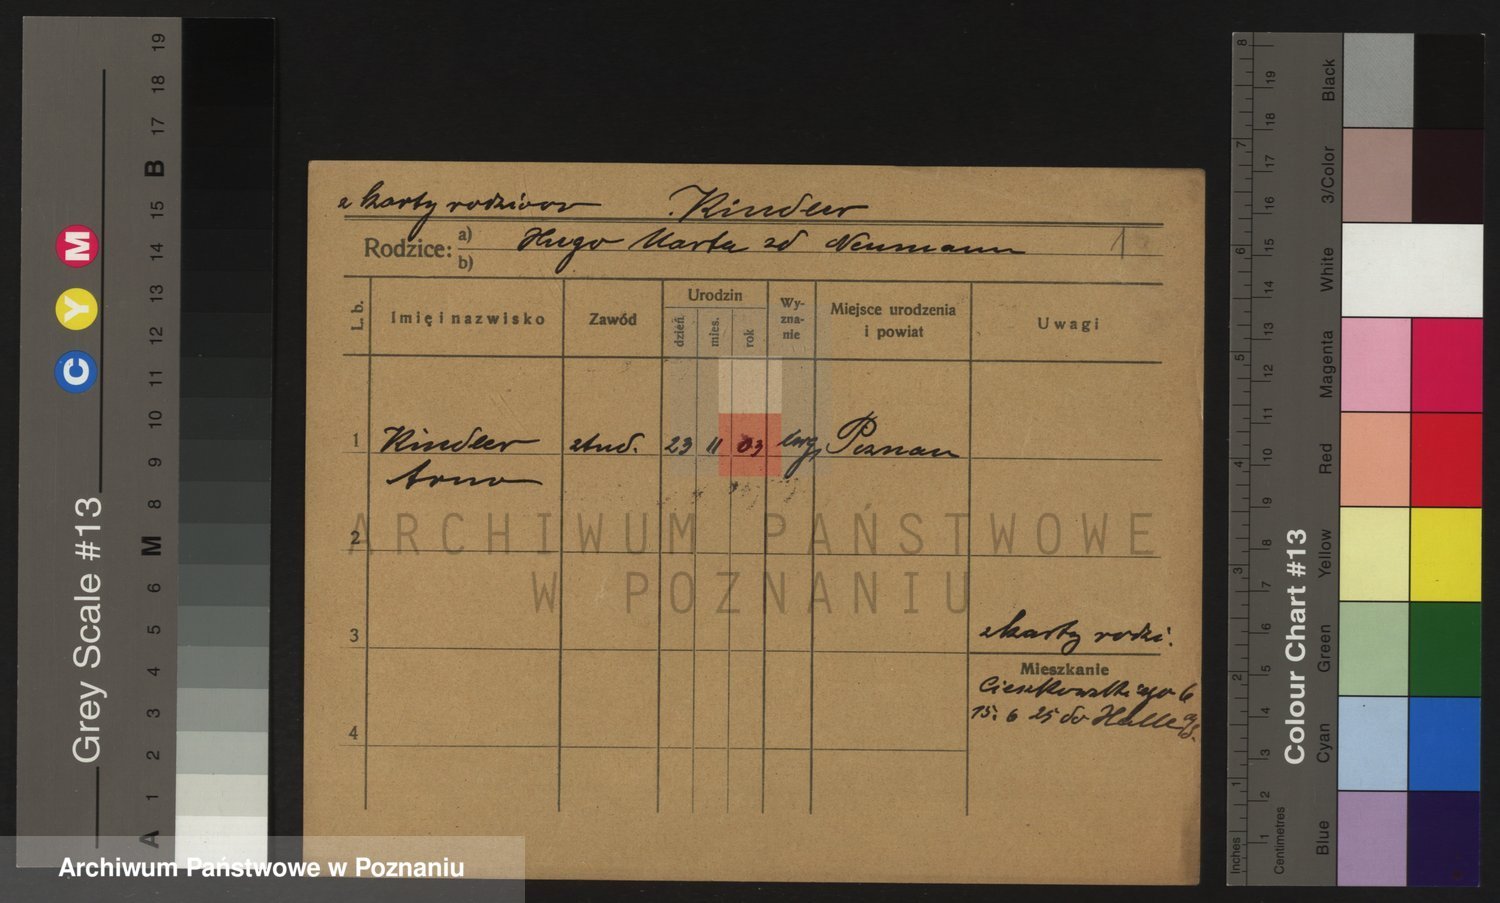 z karty rodziców Kindler
Rodzice: a) Hugo Marta zd Neumann 1
b)
L. b. Imię i nazwisko Zawód Urodzin dzień mies. rok Wyznanie Miejsce urodzenia i powiat Uwagi
1 Kindler stud. 23 11 03 ewg. Poznań
Arno
2
ARCHIWUM PAŃSTWOWE
W POZNANIU
3 z karty rodzi.
Mieszkanie
Cieszkowskiego 6
15. 6 25 do Halle
4
Archiwum Państwowe w Poznaniu
Grey Scale #13
C Y M
A 1 2 3 4 5 6 M 8 9 10 11 12 13 14 15 B 17 18 19
Colour Chart #13
Blue Cyan Green Yellow Red Magenta White 3/Color Black
Inches 1 2 3 4 5 6 7 8
Centimetres 1 2 3 4 5 6 7 8 9 10 11 12 13 14 15 16 17 18 19